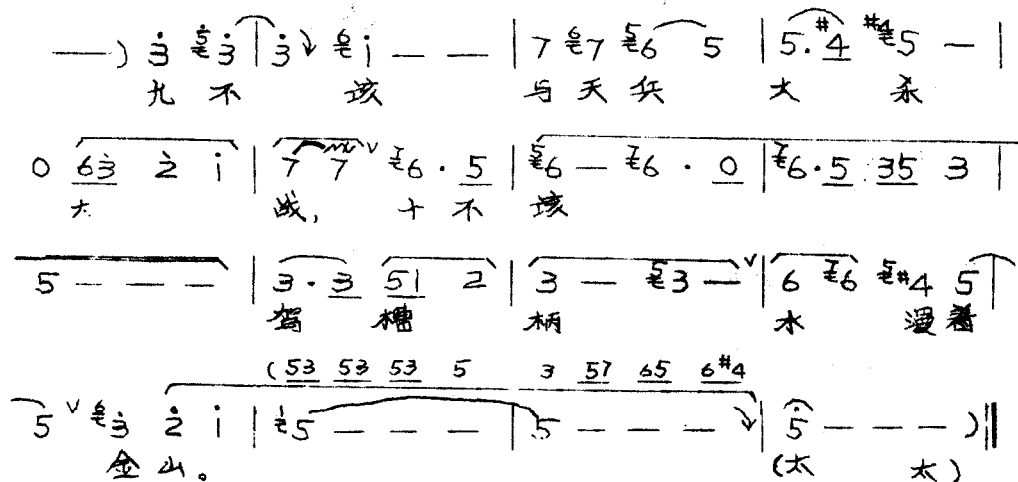 ——) 3 3 | 3 i — — | 7 7 6 5 | 5. #4 5 — |
九 不 该 与 天 兵 大 杀
0 63 2 i | 7 7 6 · 5 | 6 — 6 · 0 | 6 · 5 35 3 |
大 战, 十 不 该
5 — — — | 3 · 3 51 2 | 3 — 3 — | 6 6 #4 5 |
驾 槽 柄 水 漫 着
(53 53 53 5 3 57 65 6#4
5 3 2 i | 5 — — — | 5 — — — | 5 — — — )
金 山。 (太 太)